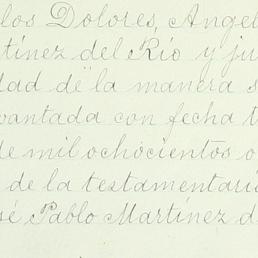 los Dolores, Angel
tínez del Río y ju
dad de la manera s
vantada con fecha t
de mil ochocientos o
de la testamentari
sé Pablo Martínez d